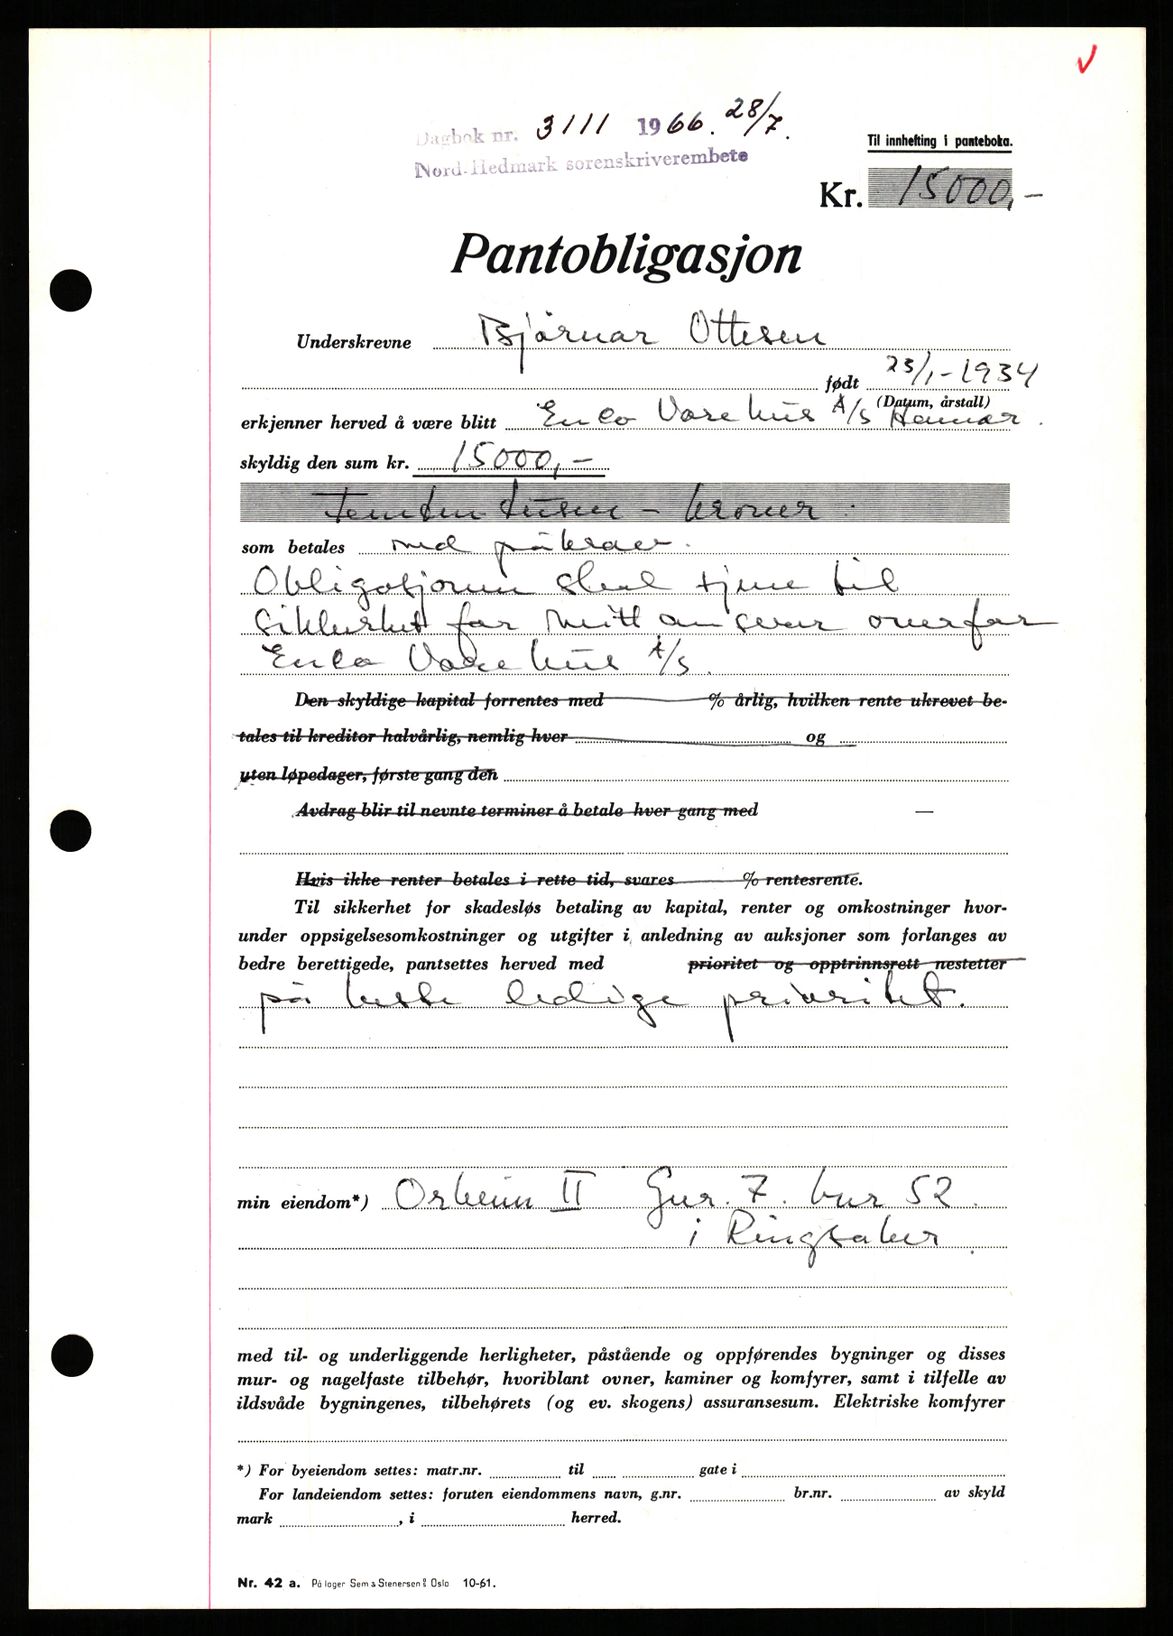 Dagbok nr. 3111 1966. 28/7.
Nord-Hedmark sorenskriverembete
Til innhefting i panteboka.
Kr. 15000,-
Pantobligasjon
Underskrevne Bjårnar Ottesen
født 23/1-1934
(Datum, årstall)
erkjenner herved å være blitt Enlo Varehus A/S Hamar.
skyldig den sum kr. 15000,-
Femten tusen - kroner.
som betales ved påkrav.
Obligasjonen skal tjene til
sikkerhet for mitt ansvar overfor
Enlo Varehus A/S.
Den skyldige kapital forrentes med % årlig, hvilken rente ukrevet be-
tales til kreditor halvårlig, nemlig hver og
uten løpedager, første gang den
Avdrag blir til nevnte terminer å betale hver gang med —
Hvis ikke renter betales i rette tid, svares % rentesrente.
Til sikkerhet for skadesløs betaling av kapital, renter og omkostninger hvor-
under oppsigelsesomkostninger og utgifter i anledning av auksjoner som forlanges av
bedre berettigede, pantsettes herved med prioritet og opptrinnsrett nestetter
på beste ledige prioritet.
min eiendom*) Orheim II Gnr. 7. bnr 52.
i Ringsaker.
med til- og underliggende herligheter, påstående og oppførendes bygninger og disses
mur- og nagelfaste tilbehør, hvoriblant ovner, kaminer og komfyrer, samt i tilfelle av
ildsvåde bygningenes, tilbehørets (og ev. skogens) assuransesum. Elektriske komfyrer
*) For byeiendom settes: matr.nr. til gate i
For landeiendom settes: foruten eiendommens navn, g.nr. br.nr. av skyld
mark , i herred.
Nr. 42 a. På lager Sem & Stenersen A/S Oslo 10-61.